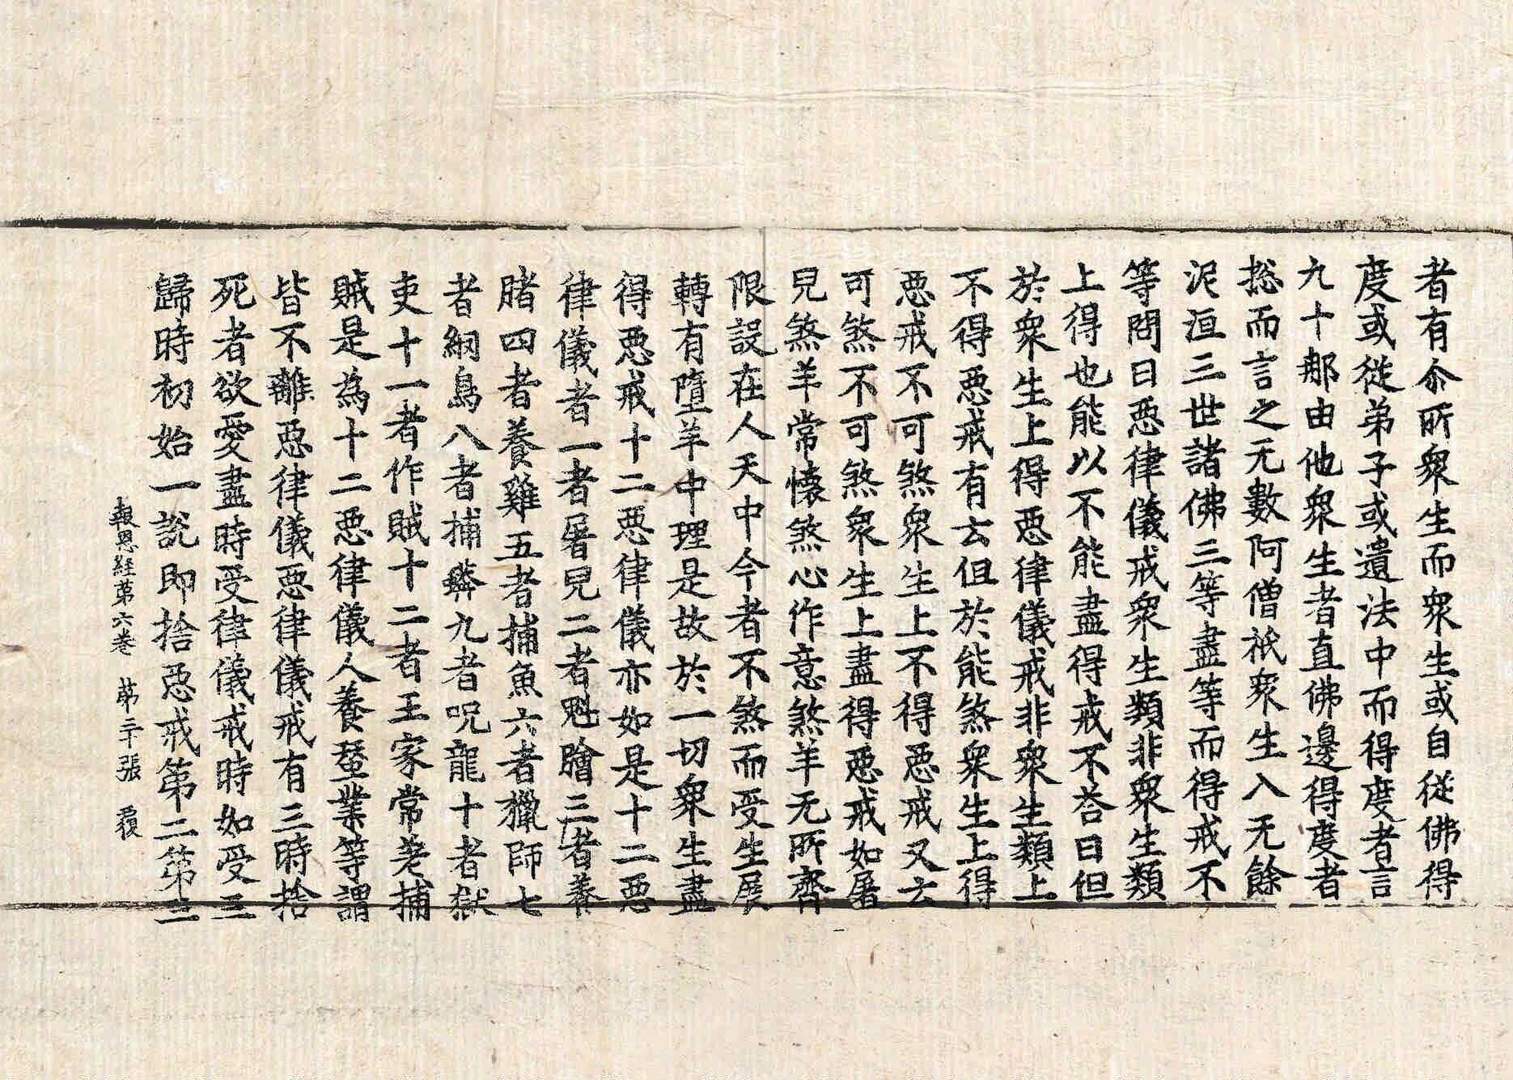 者有尒所衆生而衆生或自從佛得
度或從弟子或遺法中而得度者言
九十那由他衆生者直佛邊得度者
捴而言之无數阿僧祇衆生入无餘
泥洹三世諸佛三等盡等而得戒不
等問曰惡律儀戒衆生類非衆生類
上得也能以不能盡得戒不荅曰但
於衆生上得惡律儀戒非衆生類上
不得惡戒有云但於能煞衆生上得
惡戒不可煞衆生上不得惡戒又云
可煞不可煞衆生上盡得惡戒如屠
兒煞羊常懷煞心作意煞羊无所齊
限設在人天中今者不煞而受生展
轉有墮羊中理是故於一切衆生盡
得惡戒十二惡律儀亦如是十二惡
律儀者一者屠兒二者魁膾三者養
賭四者養雞五者捕魚六者獵師七
者網鳥八者捕蟒九者呪龍十者獄
吏十一者作賊十二者王家常差捕
賊是為十二惡律儀人養蚕業等謂
皆不離惡律儀惡律儀戒有三時捨
死者欲愛盡時受律儀戒時如受三
歸時初始一說即捨惡戒第二第三
報恩経第六卷　第二十張　覆